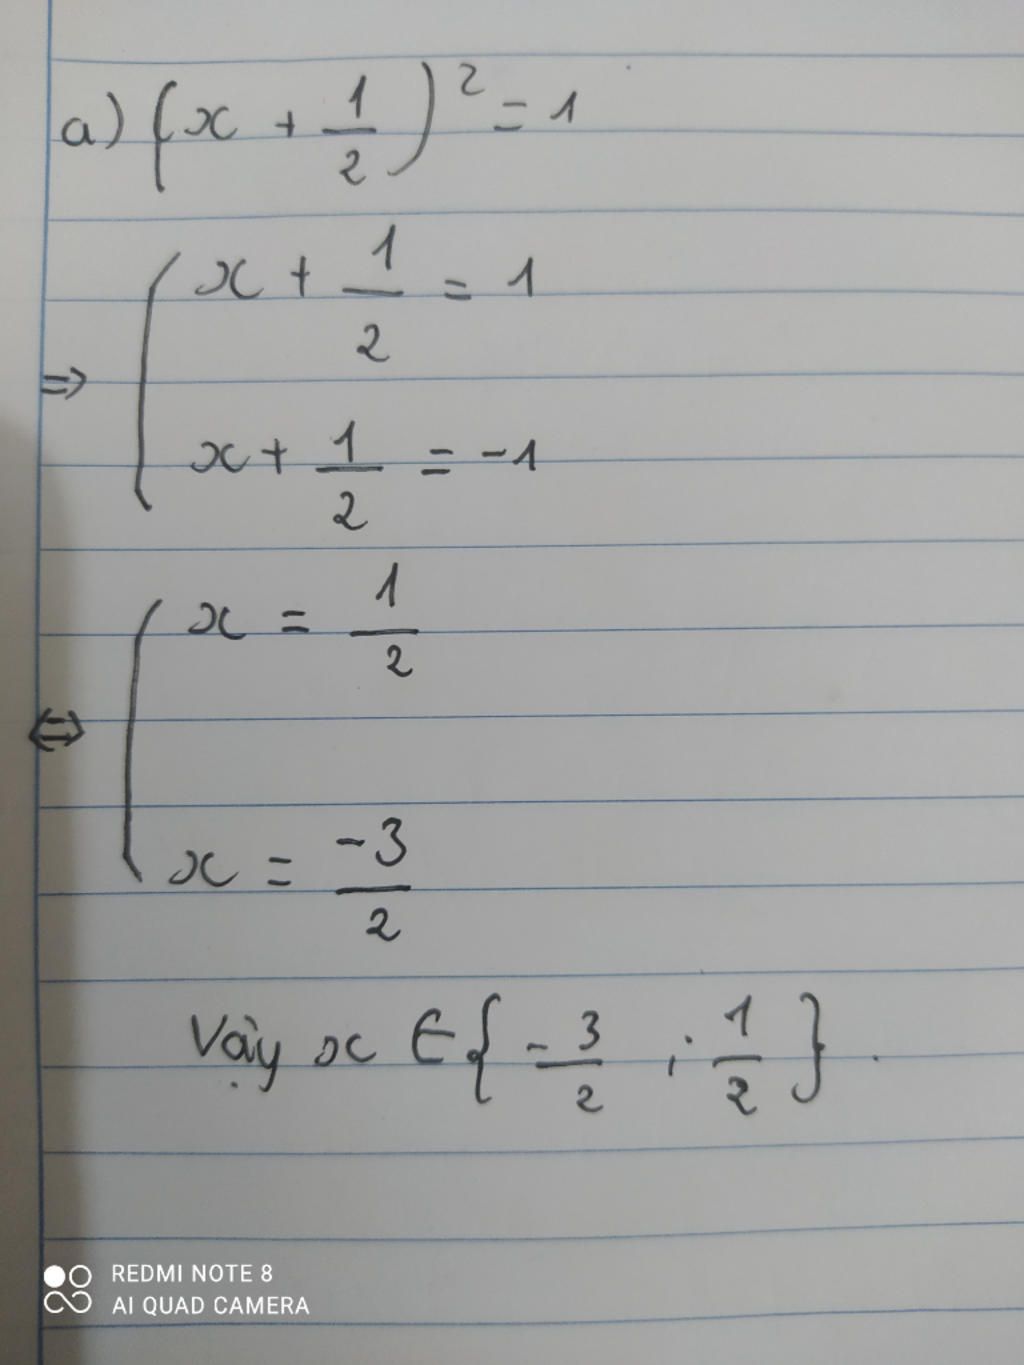 a) (x + 1/2)² = 1
⇒ [ x + 1/2 = 1
x + 1/2 = -1
⇔ [ x = 1/2
x = -3/2
Vậy x ∈ { -3/2 ; 1/2 } .
REDMI NOTE 8
AI QUAD CAMERA